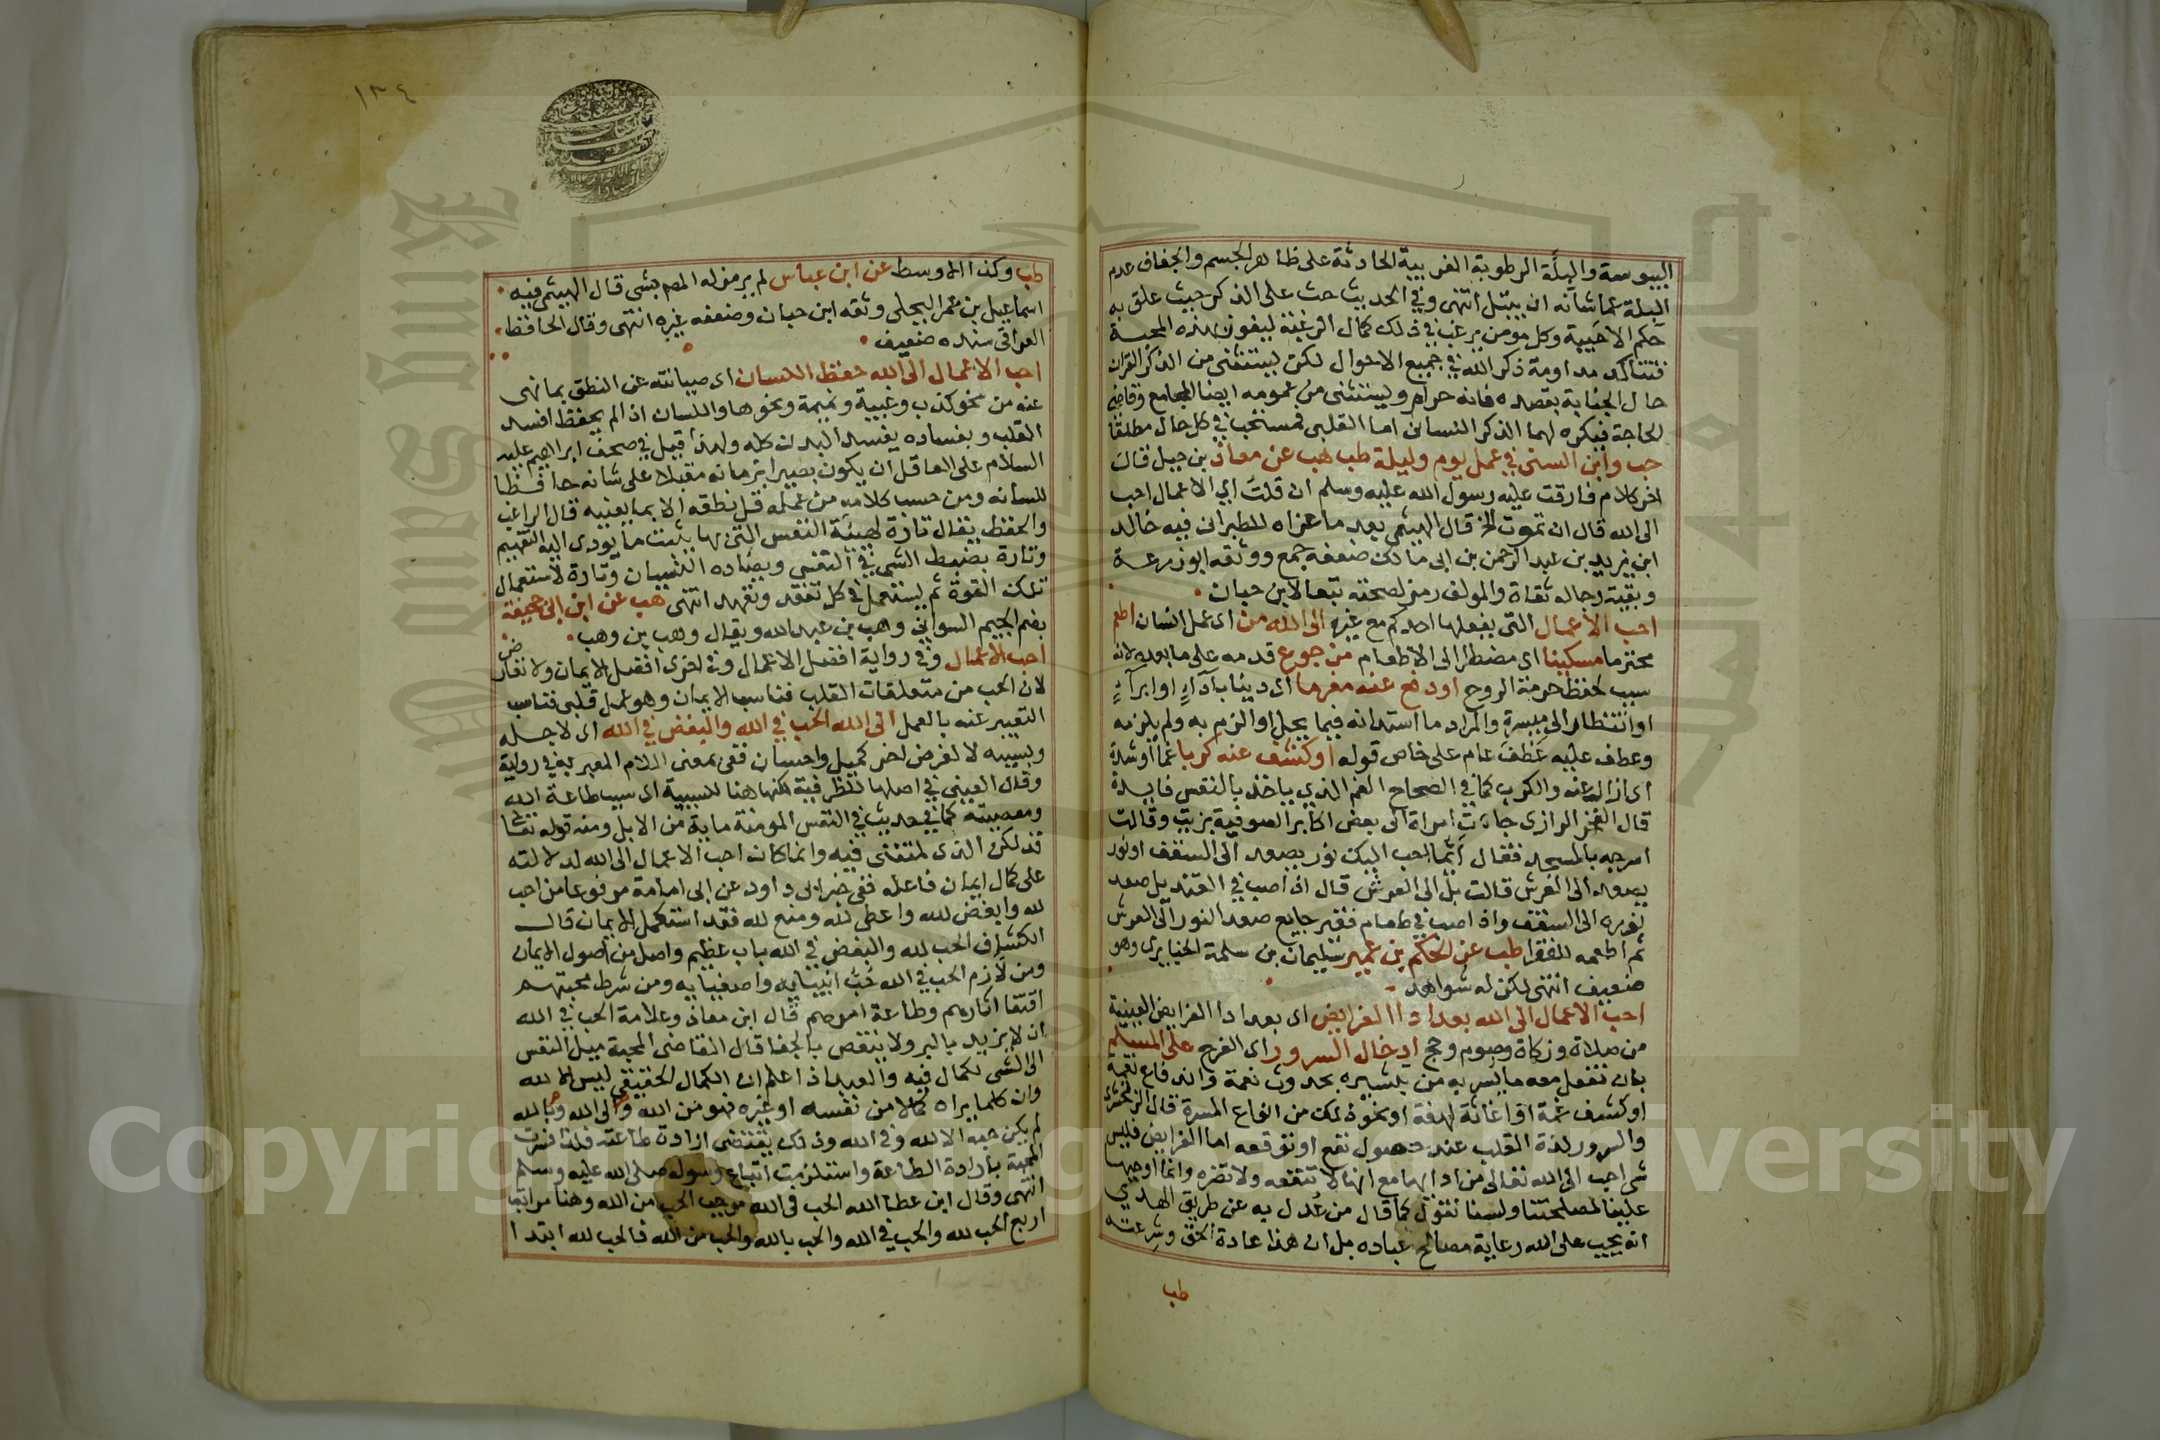 اليبوسة والبلة الرطوبة الغريبة الحادثة على ظاهر الجسم والجفاف عدم
البلة عما شأنه ان يبتل انتهى وفي الحديث حث على الذكر حيث علق به
حكم الاحبية وكل مومن يرغب في ذلك كمال الرغبة ليفوز بهذه المحبة
فتتأكد مداومة ذكر الله في جميع الاحوال لكن يستثنى من الذكر القران
حال الجنابة بقصده فانه حرام ويستثنى من عمومه ايضا المجامع وقاضى
الحاجة فيكره لهما الذكر اللسانى اما القلبى فمستحب في كل حال مطلقا
حب وابن السنى في عمل يوم وليلة طب هب عن معاذ بن جبل قال
اخر كلام فارقت عليه رسول الله عليه وسلم ان قلت اي الاعمال احب
الى الله قال ان تموت الخ قال الهيثمي بعد ما عزاه للطبرانى فيه خالد
ابن يزيد بن عبد الرحمن بن ابى مالك ضعفه جمع ووثقه ابو زرعة
وبقية رجاله ثقاة والمولف رمز لصحته تبعا لابن حبان
احب الاعمال التى يفعلها احدكم مع غيره الى الله من اى عمل انسان اطعم
محترما مسكينا اى مضطرا الى الاطعام من جوع قدمه على ما بعده لانه
سبب لحفظ حرمة الروح او دفع عنه مغرما اى دينا بآداءٍ او ابرآءٍ
او انتظار الى ميسرة والمراد ما استدانه فيما يحل او الزم به ولم يلزمه
وعطف عليه عطف عام على خاص قوله او كشف عنه كربا غما او شدة
اى ازاله عنه والكرب كما في الصحاح الغم الذي ياخذ بالنفس فايدة
قال الفخر الرازى جاءت امراة الى بعض اكابر الصوفية بزيت وقالت
اسرجه بالمسجد فقال أيما احب اليك نور يصعد الى السقف او نور
يصعد الى العرش قالت بل الى العرش قال اذا صب في القنديل صعد
نوره الى السقف واذا صب في طعام فقير جايع صعد النور الى العرش
ثم اطعمه للفقرا طب عن الحكم بن عمير سليمان بن سلمة الخبايرى وهو
ضعيف انتهى لكن له شواهد
احب الاعمال الى الله بعد اداا الفرايض اى بعد ادا الفرايض العينية
من صلاة وزكاة وصوم وحج ادخال السرور اى الفرح على المسلم
بان تفعل معه ما يسر به من تبشيره بحدوث نعمة واندفاع نقمة
او كشف غمة او اغاثة لهفة او نحو ذلك من انواع المسرة قال الزمخشرى
والسرور لذة القلب عند حصول نفع او توقعه اما الفرايض فليس
شى احب الى الله تعالى من ادايها مع انها لا تنفعه ولا تضره وانما اوجبها
علينا لمصلحتنا ولسنا نقول كما قال من عُدل به عن طريق الهدى
انه يجب على الله رعاية مصالح عباده بل ان هذا عادة الحق وشرعته
طب
١٣٤
طب وكذا الاوسط عن ابن عباس لم يرمز له المص بشى قال الهيثمى فيه
اسماعيل بن عمر البجلى وثقه ابن حبان وضعفه غيره انتهى وقال الحافظ
العراقى سنده ضعيف
احب الاعمال الى الله حفظ اللسان اى صيانته عن النطق بما نهى
عنه من نحو كذب وغيبة ونميمة ونحوها واللسان اذا لم يحفظ افسد
القلب وبفساده يفسد البدن كله ولهذا قيل في صحف ابراهيم عليه
السلام على العاقل ان يكون بصيرا بزمانه مقبلا على شانه حافظا
للسانه ومن حسب كلامه من عمله قل نطقه الا بما يعنيه قال الراغب
والحفظ يقال تارة لهيئة النفس التى بها يثبت ما يودى اليه التفهيم
وتارة بضبط الشى في النفس ويضاده النسيان وتارة لاستعمال
تلك القوة ثم يستعمل في كل تفقد وتعهد انتهى هب عن ابن ابى جحيفة
بضم الجيم السوائي وهب بن عبد الله ويقال وهب بن وهب
ض
احب الاعمال وفي رواية افضل الاعمال وفى اخرى افضل الايمان ولا تعارض
لان الحب من متعلقات القلب فناسب الايمان وهو عمل قلبى فناسب
التعبير عنه بالعمل الى الله الحب في الله والبغض في الله اى لاجله
وبسببه لا لغرض اخر كميل واحسان ففى بمعنى اللام المعبر به فى رواية
وقال العينى في اصلها للظرفية لكنها هنا للسببية اى سبب طاعة الله
ومعصيته كما في حديث في النفس المومنة ماية من الابل ومنه قوله تعالى
فذلكن الذى لمتننى فيه وانما كان احب الاعمال الى الله لدلالته
على كمال ايمان فاعله ففى خبر ابى داود عن ابى امامة مرفوعا من احب
لله وابغض لله واعطى لله ومنع لله فقد استكمل الايمان قال
الكشاف الحب لله والبغض في الله باب عظيم واصل من اصول الايمان
ومن لازم الحب في الله حُبّ انبيايه واصفيايه ومن شرط محبتهم
اقتفا اثارهم وطاعة امرهم قال ابن معاذ وعلامة الحب في الله
ان لا يزيد بالبر ولا ينقص بالجفا قال القاضى المحبة ميل النفس
الى الشى لكمال فيه والعبد اذا علم ان الكمال الحقيقي ليس الا لله
وان كلما يراه كمالا من نفسه او غيره فهو من الله والى الله وبالله
لم يكن حبه الا لله وفي الله وذلك يقتضى ارادة طاعته فلذا فسرت
المحبة بارادة الطاعة واستلزمت اتباع رسوله صلى الله عليه وسلم
انتهى وقال ابن عطا الله الحب فى الله موجب الحب من الله وهنا مراتب
اربع الحب لله والحب في الله والحب بالله والحب من الله فالحب لله ابتدا
Copyright King Saud University